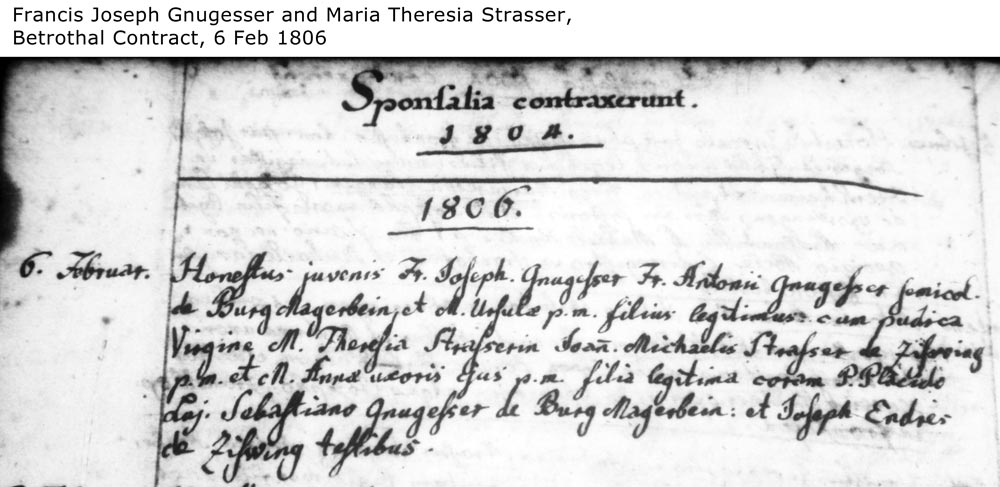 Francis Joseph Gnugesser and Maria Theresia Strasser,
Betrothal Contract, 6 Feb 1806
Sponsalia contraxerunt.
1804.
1806.
6. Februar. Honestus juvenis Fr. Joseph. Gnugesser Fr. Antonii Gnugesser semicol.
de Burg Magerbein, et M. Ursulæ p.m. filius legitimus: cum pudica
Virgine M. Theresia Strasserin Joan̄. Michaelis Strasser de ZisWing
p.m. et M. Annæ uxoris ejus p.m. filia legitima coram P. Placido
Sebastiano Gnugesser de Burg Magerbein: et Joseph Endres
de Ziswing testibus.